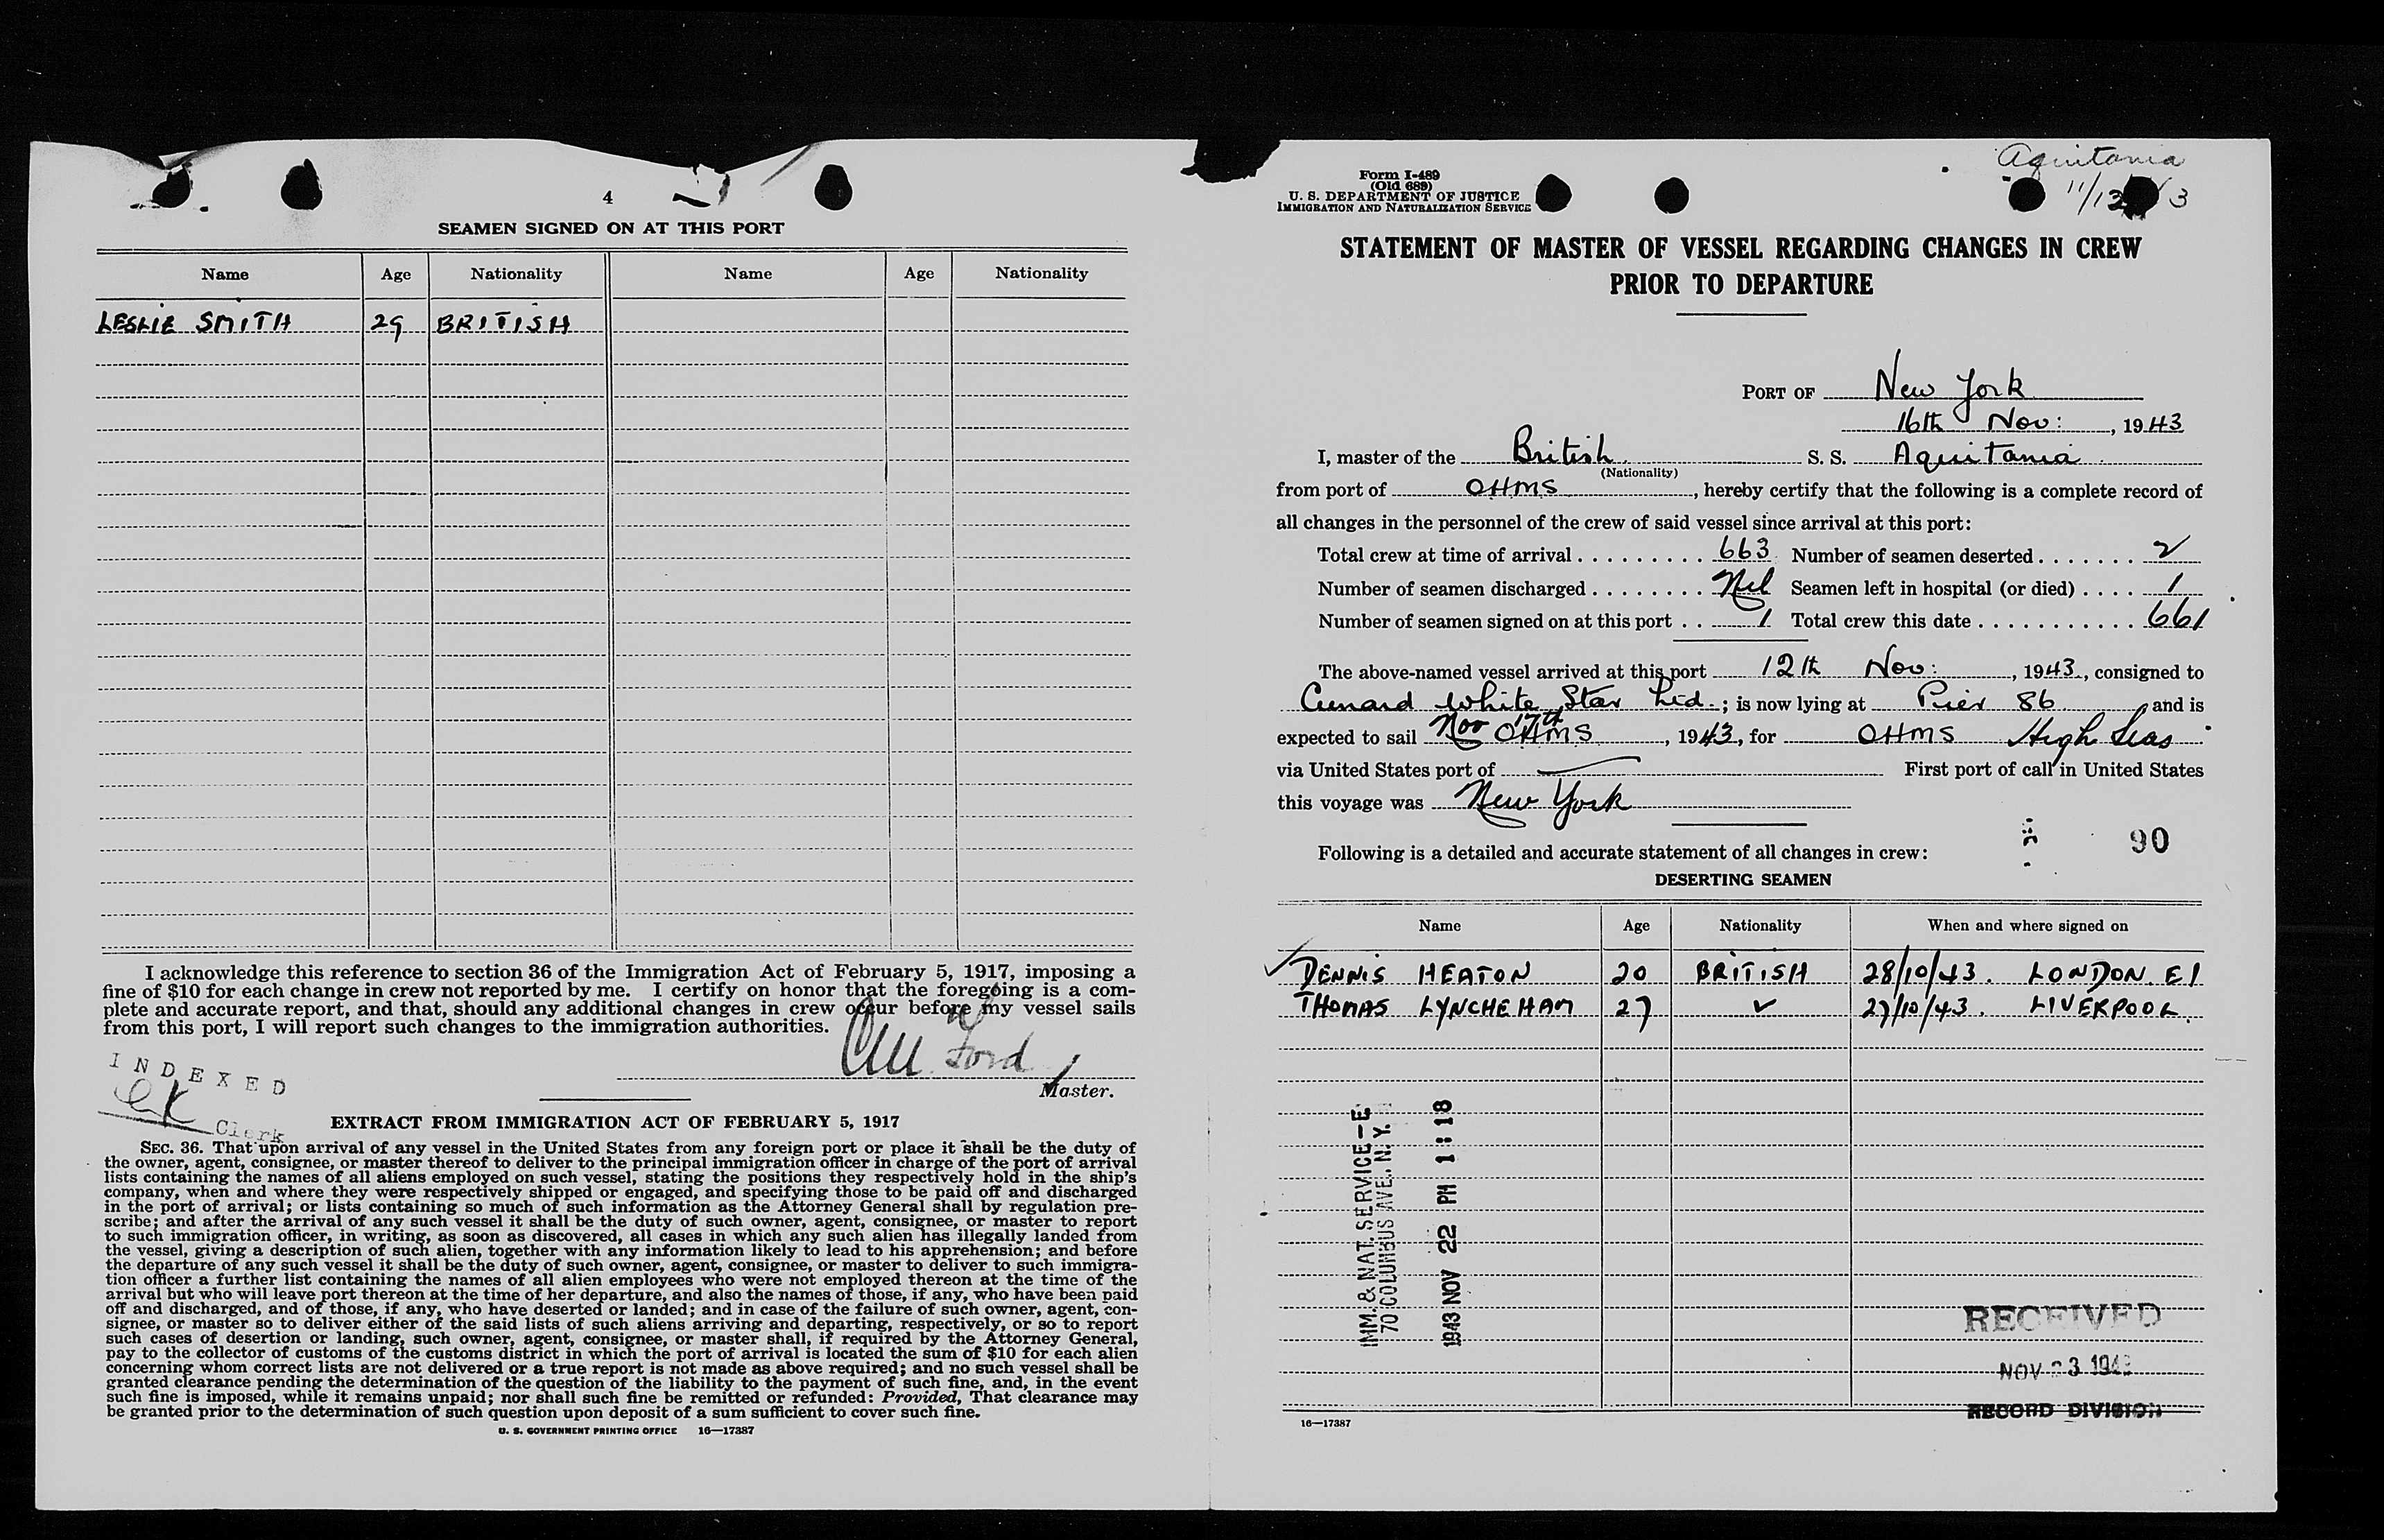 4
SEAMEN SIGNED ON AT THIS PORT
Name Age Nationality Name Age Nationality
LESLIE SMITH 29 BRITISH
I acknowledge this reference to section 36 of the Immigration Act of February 5, 1917, imposing a
fine of $10 for each change in crew not reported by me. I certify on honor that the foregoing is a com-
plete and accurate report, and that, should any additional changes in crew occur before my vessel sails
from this port, I will report such changes to the immigration authorities.
Ford
Master.
INDEXED
Clerk
EXTRACT FROM IMMIGRATION ACT OF FEBRUARY 5, 1917
SEC. 36. That upon arrival of any vessel in the United States from any foreign port or place it shall be the duty of
the owner, agent, consignee, or master thereof to deliver to the principal immigration officer in charge of the port of arrival
lists containing the names of all aliens employed on such vessel, stating the positions they respectively hold in the ship's
company, when and where they were respectively shipped or engaged, and specifying those to be paid off and discharged
in the port of arrival; or lists containing so much of such information as the Attorney General shall by regulation pre-
scribe; and after the arrival of any such vessel it shall be the duty of such owner, agent, consignee, or master to report
to such immigration officer, in writing, as soon as discovered, all cases in which any such alien has illegally landed from
the vessel, giving a description of such alien, together with any information likely to lead to his apprehension; and before
the departure of any such vessel it shall be the duty of such owner, agent, consignee, or master to deliver to such immigra-
tion officer a further list containing the names of all alien employees who were not employed thereon at the time of the
arrival but who will leave port thereon at the time of her departure, and also the names of those, if any, who have been paid
off and discharged, and of those, if any, who have deserted or landed; and in case of the failure of such owner, agent, con-
signee, or master so to deliver either of the said lists of such aliens arriving and departing, respectively, or so to report
such cases of desertion or landing, such owner, agent, consignee, or master shall, if required by the Attorney General,
pay to the collector of customs of the customs district in which the port of arrival is located the sum of $10 for each alien
concerning whom correct lists are not delivered or a true report is not made as above required; and no such vessel shall be
granted clearance pending the determination of the question of the liability to the payment of such fine, and, in the event
such fine is imposed, while it remains unpaid; nor shall such fine be remitted or refunded: Provided, That clearance may
be granted prior to the determination of such question upon deposit of a sum sufficient to cover such fine.
U. S. GOVERNMENT PRINTING OFFICE 16—17387
Aquitania
Form I-489
(Old 689)
U. S. DEPARTMENT OF JUSTICE
IMMIGRATION AND NATURALIZATION SERVICE
STATEMENT OF MASTER OF VESSEL REGARDING CHANGES IN CREW
PRIOR TO DEPARTURE
PORT OF New York
16th Nov: , 1943
I, master of the British S. S. Aquitania
(Nationality)
from port of OHMS , hereby certify that the following is a complete record of
all changes in the personnel of the crew of said vessel since arrival at this port:
Total crew at time of arrival 663 Number of seamen deserted 2
Number of seamen discharged Nil Seamen left in hospital (or died) 1
Number of seamen signed on at this port 1 Total crew this date 661
The above-named vessel arrived at this port 12th Nov: , 1943, consigned to
Cunard White Star Ltd. ; is now lying at Pier 86 and is
expected to sail Nov 17th OHMS , 1943, for OHMS High Seas
via United States port of — First port of call in United States
this voyage was New York
90
Following is a detailed and accurate statement of all changes in crew:
DESERTING SEAMEN
Name Age Nationality When and where signed on
✓ DENNIS HEATON 20 BRITISH 28/10/43. LONDON. E1
THOMAS LYNCHEHAM 27 ✓ 27/10/43. LIVERPOOL.
IMM. & NAT. SERVICE-E
70 COLUMBUS AVE. N. Y.
1943 NOV 22 PM 1:18
RECEIVED
NOV 23 1943
RECORD DIVISION
16—17387